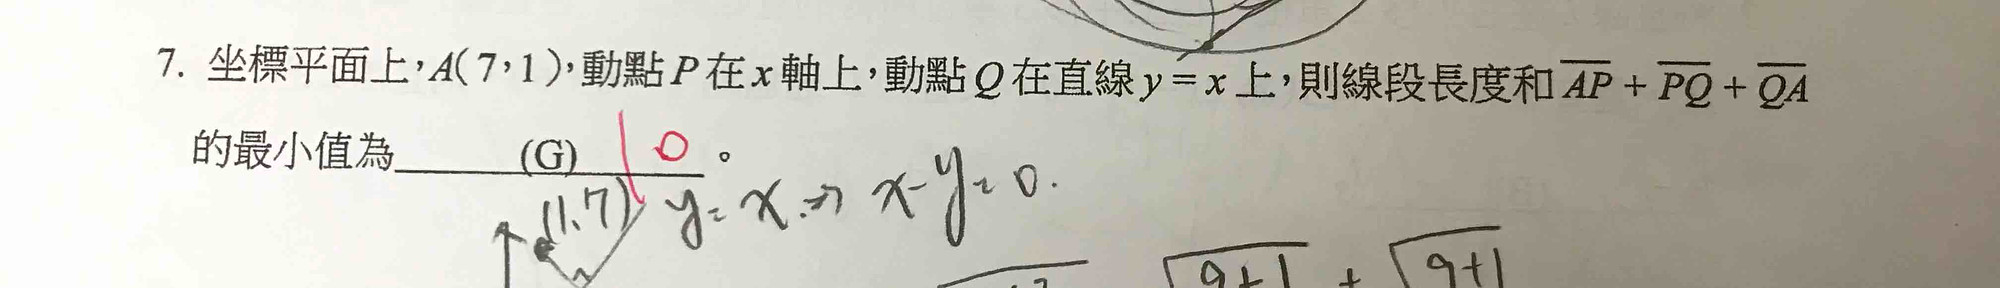 7. 坐標平面上，A(7，1)，動點P在x軸上，動點Q在直線y=x上，則線段長度和AP+PQ+QA
的最小值為 (G) 10 。
(1,7) y=x ⇒ x-y=0.
√9+1 + √9+1